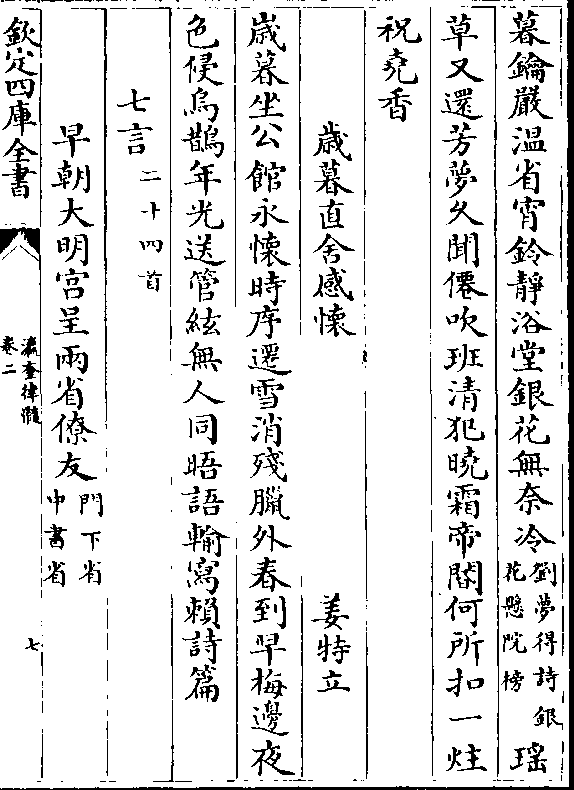 暮鑰嚴温省宵鈴靜浴堂銀花無奈冷劉夢得詩銀花懸院榜瑶
草又還芳夢久聞僊吹班清犯曉霜帝閽何所扣一炷
祝堯香
歳暮直舍感懷 姜特立
嵗暮坐公館永懷時序遷雪消殘臘外春到早梅邊夜
色侵烏鵲年光送管絃無人同晤語輸寫賴詩篇
七言二十四首
早朝大明宫呈兩省僚友門下省中書省
欽定四庫全書
瀛奎律髓
卷二
七